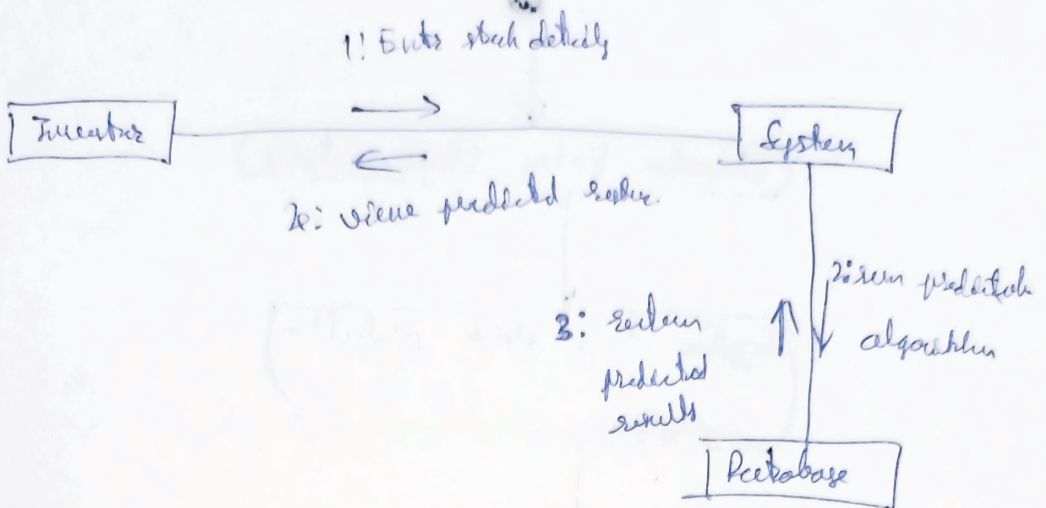 1: Enter stock details
Investor
System
2: view predicted
2: run prediction
algorithm
3: return
predicted
results
Database